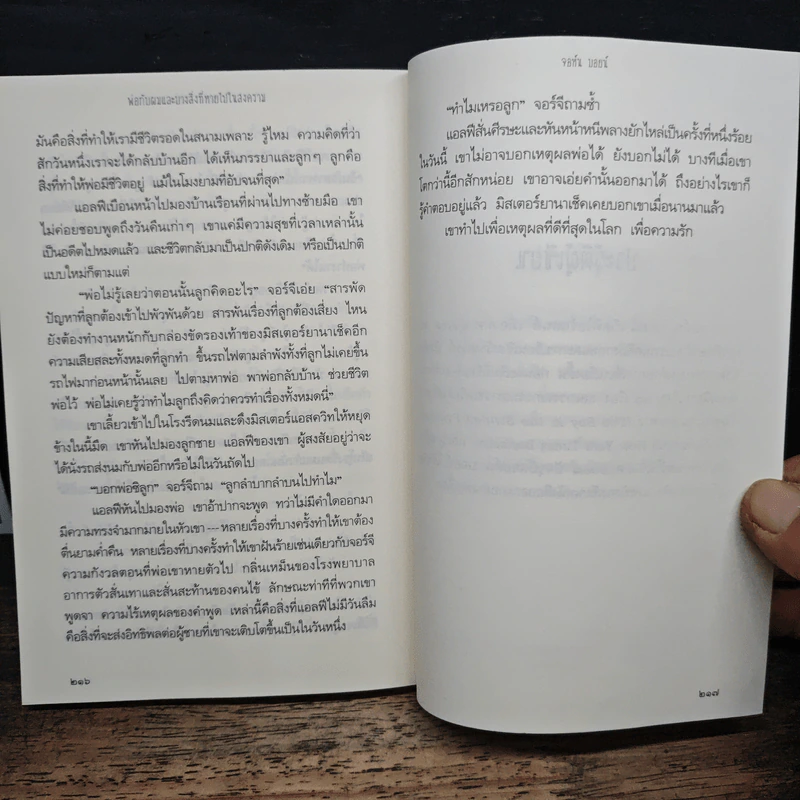 พ่อกับผมและบางสิ่งที่หายไปในสงคราม
มันคือสิ่งที่ทำให้เรามีชีวิตรอดในสนามเพลาะ รู้ไหม ความคิดที่ว่า
สักวันหนึ่งเราจะได้กลับบ้านอีก ได้เห็นภรรยาและลูกๆ ลูกคือ
สิ่งที่ทำให้พ่อมีชีวิตอยู่ แม้ในโมงยามที่อับจนที่สุด”
แอลฟีเบือนหน้าไปมองบ้านเรือนที่ผ่านไปทางซ้ายมือ เขา
ไม่ค่อยชอบพูดถึงวันคืนเก่าๆ เขาแค่มีความสุขที่เวลาเหล่านั้น
เป็นอดีตไปหมดแล้ว และชีวิตกลับมาเป็นปกติดังเดิม หรือเป็นปกติ
แบบใหม่ก็ตามแต่
“พ่อไม่รู้เลยว่าตอนนั้นลูกคิดอะไร” จอร์จีเอ่ย “สารพัด
ปัญหาที่ลูกต้องเข้าไปพัวพันด้วย สารพันเรื่องที่ลูกต้องเสี่ยง ไหน
ยังต้องทำงานหนักกับกล่องขัดรองเท้าของมิสเตอร์ยานาเช็คอีก
ความเสียสละทั้งหมดที่ลูกทำ ขึ้นรถไฟตามลำพังทั้งที่ลูกไม่เคยขึ้น
รถไฟมาก่อนหน้านั้นเลย ไปตามหาพ่อ พาพ่อกลับบ้าน ช่วยชีวิต
พ่อไว้ พ่อไม่เคยรู้ว่าทำไมลูกถึงคิดว่าควรทำเรื่องทั้งหมดนี้”
เขาเลี้ยวเข้าไปในโรงรีดนมและดึงมิสเตอร์แอสควิทให้หยุด
ข้างในนี้มืด เขาหันไปมองลูกชาย แอลฟีของเขา ผู้สงสัยอยู่ว่าจะ
ได้นั่งรถส่งนมกับพ่ออีกหรือไม่ในวันถัดไป
“บอกพ่อซิลูก” จอร์จีถาม “ลูกลำบากลำบนไปทำไม”
แอลฟีหันไปมองพ่อ เขาอ้าปากจะพูด ทว่าไม่มีคำใดออกมา
มีความทรงจำมากมายในหัวเขา --- หลายเรื่องที่บางครั้งทำให้เขาต้อง
ตื่นยามค่ำคืน หลายเรื่องที่บางครั้งทำให้เขาฝันร้ายเช่นเดียวกับจอร์จี
ความกังวลตอนที่พ่อเขาหายตัวไป กลิ่นเหม็นของโรงพยาบาล
อาการตัวสั่นเทาและสั่นสะท้านของคนไข้ ลักษณะท่าทีที่พวกเขา
พูดจา ความไร้เหตุผลของคำพูด เหล่านี้คือสิ่งที่แอลฟีไม่มีวันลืม
คือสิ่งที่จะส่งอิทธิพลต่อผู้ชายที่เขาจะเติบโตขึ้นเป็นในวันหนึ่ง
๒๑๖
จอห์น บอยน์
“ทำไมเหรอลูก” จอร์จีถามซ้ำ
แอลฟีสั่นศีรษะและหันหน้าหนีพลางยักไหล่เป็นครั้งที่หนึ่งร้อย
ในวันนี้ เขาไม่อาจบอกเหตุผลพ่อได้ ยังบอกไม่ได้ บางทีเมื่อเขา
โตกว่านี้อีกสักหน่อย เขาอาจเอ่ยคำนั้นออกมาได้ ถึงอย่างไรเขาก็
รู้คำตอบอยู่แล้ว มิสเตอร์ยานาเช็คเคยบอกเขาเมื่อนานมาแล้ว
เขาทำไปเพื่อเหตุผลที่ดีที่สุดในโลก เพื่อความรัก
๒๑๗